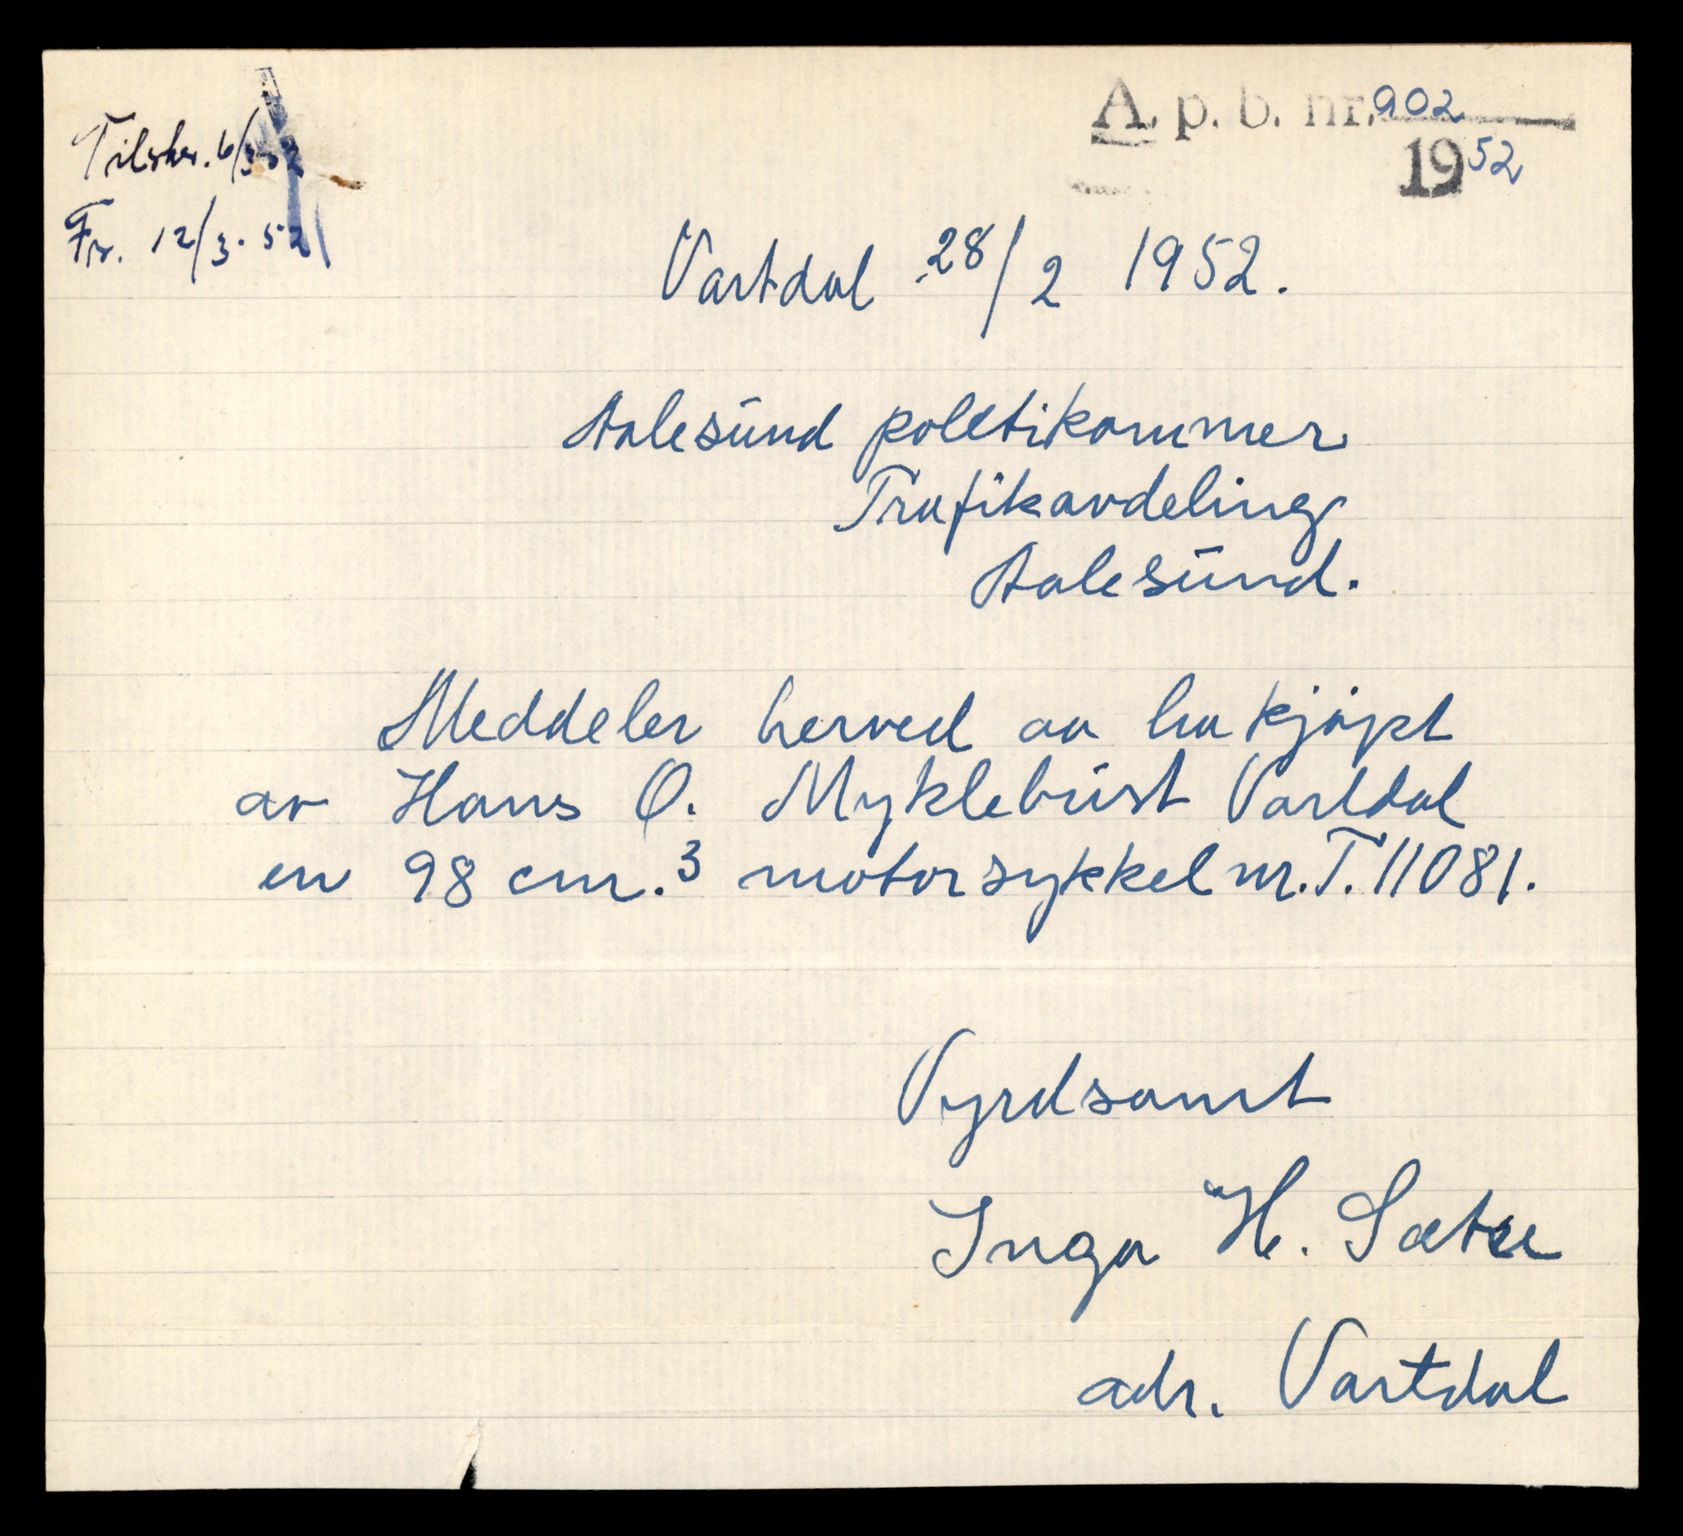 Tilskr. 6/3 52
Fr. 12/3. 52
A. p. b. nr. 902
1952
Vartdal 28/2 1952.
Aalesund politikammer
Trafikavdeling
Aalesund.
Meddeler herved aa ha kjøpt
av Hans O. Myklebust Vartdal
en 98 cm.³ motorsykkel nr. T. 11081.
Vyrdsamt
Inga H. Sætre
adr. Vartdal